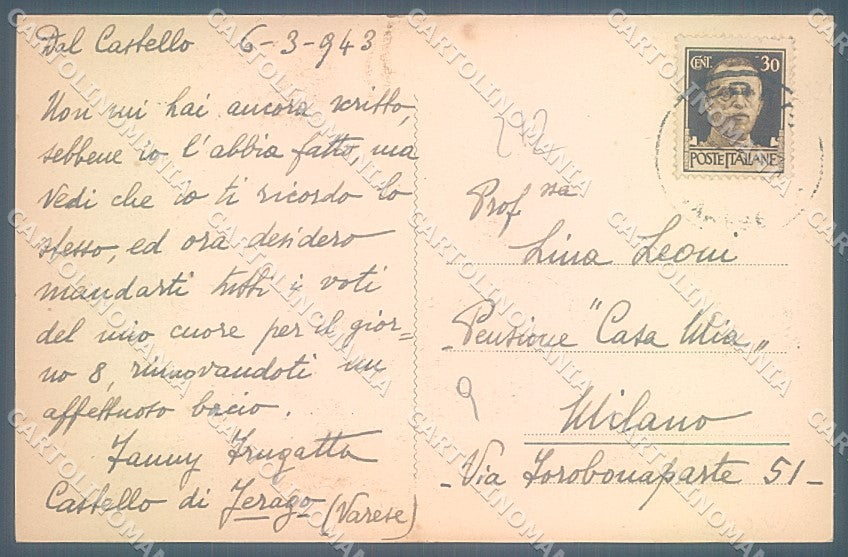 Dal Castello 6-3-943
Non mi hai ancora scritto,
sebbene io l'abbia fatto, ma
vedi che io ti ricordo lo
stesso, ed ora desidero
mandarti tutti i voti
del mio cuore per il gior=
no 8, rinnovandoti un
affettuoso bacio.
Fanny Frugatta
Castello di Jerago (Varese)
CENT. 30
POSTE ITALIANE
Prof.ssa
Lina Leoni
Pensione "Casa Mia"
Milano
- Via Forobonaparte 51 -
CARTOLINOMANIA